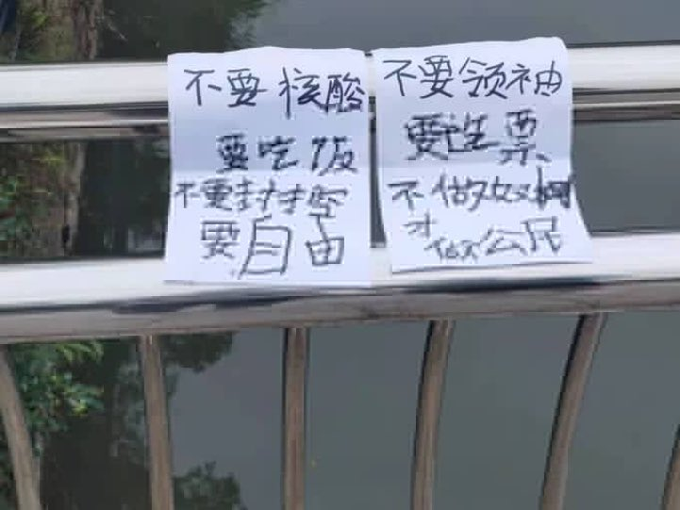 不要核酸
要吃饭
不要封控
要自由
不要领袖
要选票
不做奴
才做公民